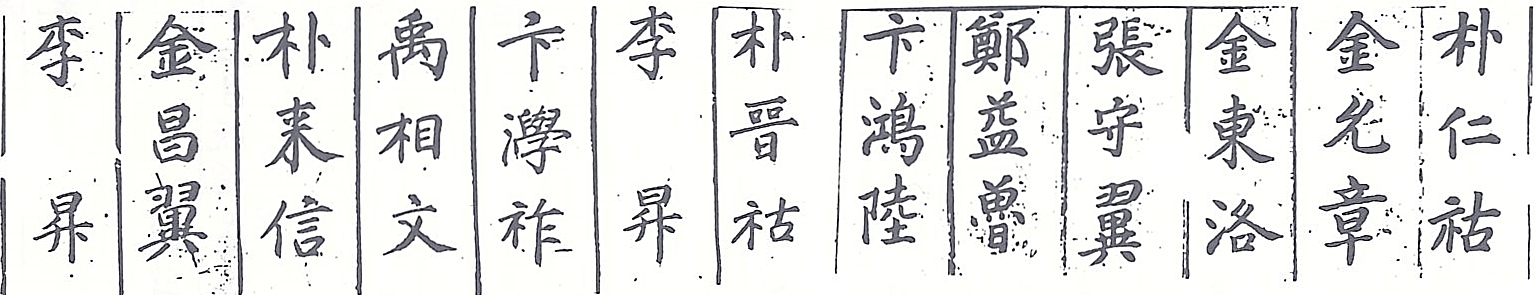 朴仁祜
金允章
金東洛
張守翼
鄭益曾
卞鴻陸
朴晋祜
李昇
卞㶅祚
禹相文
朴来信
金昌翼
李昇